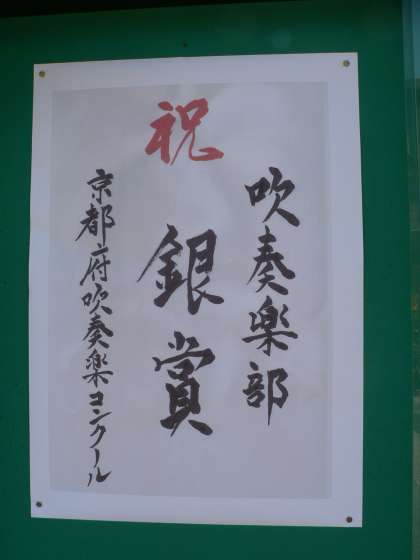 吹奏楽部
祝
銀賞
京都府吹奏楽コンクール